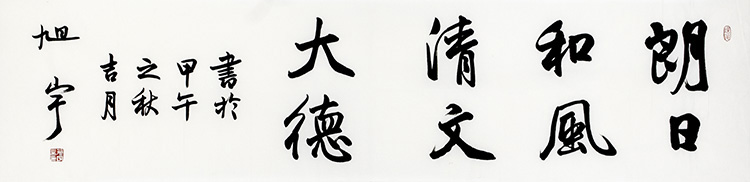 朗日
和風
清文
大德
書於
甲午
之秋
吉月
旭宇